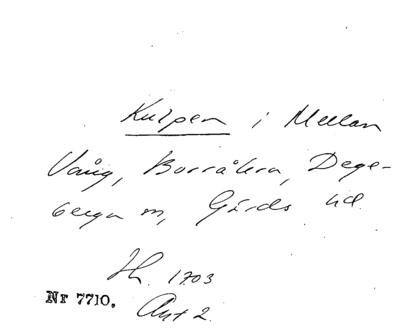 Kulpen i Mellan
Vång, Borråkra, Dege-
berga sn, Gärds hd.
Jh. 1703
Nr 7710. Akt 2.